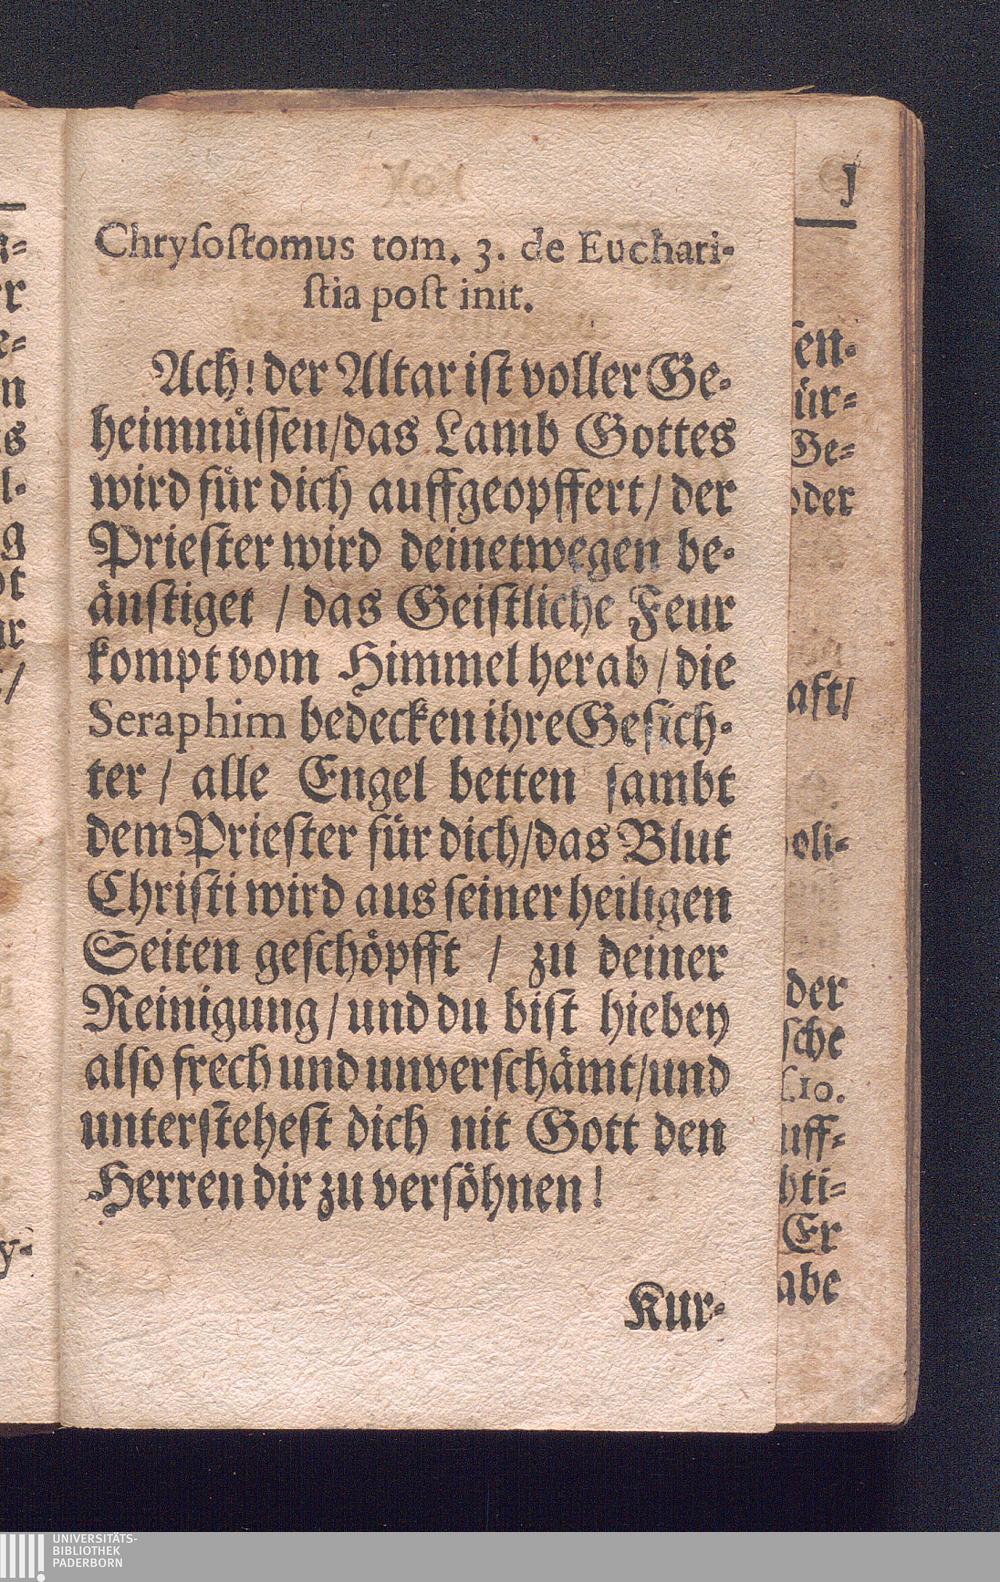 Chrysostomus tom. 3. de Euchari-
stia post init.
Ach! der Altar ist voller Ge-
heimnüssen/das Lamb Gottes
wird für dich auffgeopffert/ der
Priester wird deinetwegen be-
änstiget / das Geistliche Feur
kompt vom Himmel herab/die
Seraphim bedecken ihre Gesich-
ter/ alle Engel betten sambt
dem Priester für dich/das Blut
Christi wird aus seiner heiligen
Seiten geschöpfft / zu deiner
Reinigung/und du bist hiebey
also frech und unverschämt/und
unterstehest dich nit Gott den
Herren dir zu versöhnen!
Kur-
en-
ür-
Ge-
oder
aft/
oli-
der
sche
10.
uff-
hti-
Er
abe
UNIVERSITÄTS-
BIBLIOTHEK
PADERBORN